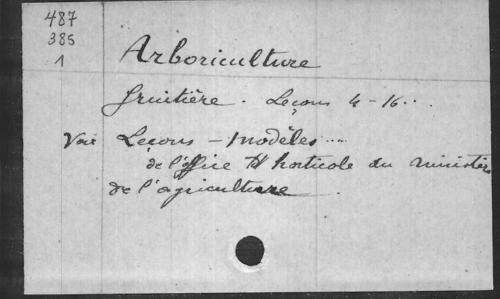 487
385
1
Arboriculture
fruitière. Leçons 4-16...
Voir Leçons - modèles...
de l'office horticole du ministère
de l'agriculture.